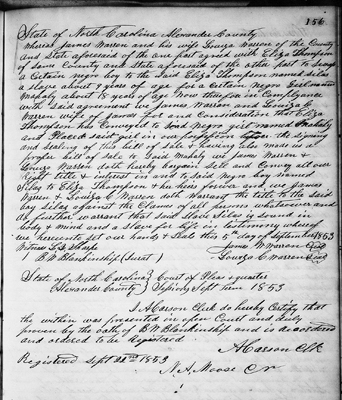 156
State of North Carolina Alexander County
Whereas James Warren and his wife Louiza Warren of the County
and State aforesaid of the one part agreed with Eliza Thompson
of same County and State aforesaid of the other part to swap
a Certain negro boy to the said Eliza Thompson named Silas
a slave about 9 years of age for a Certain Negro Girl named
Mahaly about years of age Now therefore in Compliance
with said agreement we James Warren and Louiza C
Warren wife of James for and Consideration that Eliza
Thompson has Conveyed to said Negro girl named Mahaly
and Placed said girl in our possession the signing
and sealing of this bill of sale & having also made us a
proper bill of sale to said Mahaly we James Warren &
Louiza Warren doth hereby bargain Sell and Convey all our
right title & interest in and to said Negro boy named
Silas to Eliza Thompson & her heirs forever and we James
Warren & Louiza C Warren doth Warrant the title to the said
boy Silas against the Claims of all persons whatsoever and
do further warrant that said Slave Silas is sound in
body & mind and a slave for life in testimony whereof
we hereunto set our hands & Seals this day of September 1853
Witness Sharpe James W Warren Seal
B W Blankinship (Jurat) Louiza C Warren Seal
State of North Carolina } Court of Pleas & quarter
Alexander County } Sept Term 1853
I A Carson Clerk do hereby Certify that
the within was presented in open Court and duly
proven by the oath of B W Blankinship and is
and ordered to be Registered
A Carson Clk
Registered Sept 22nd 1853
N A Moose